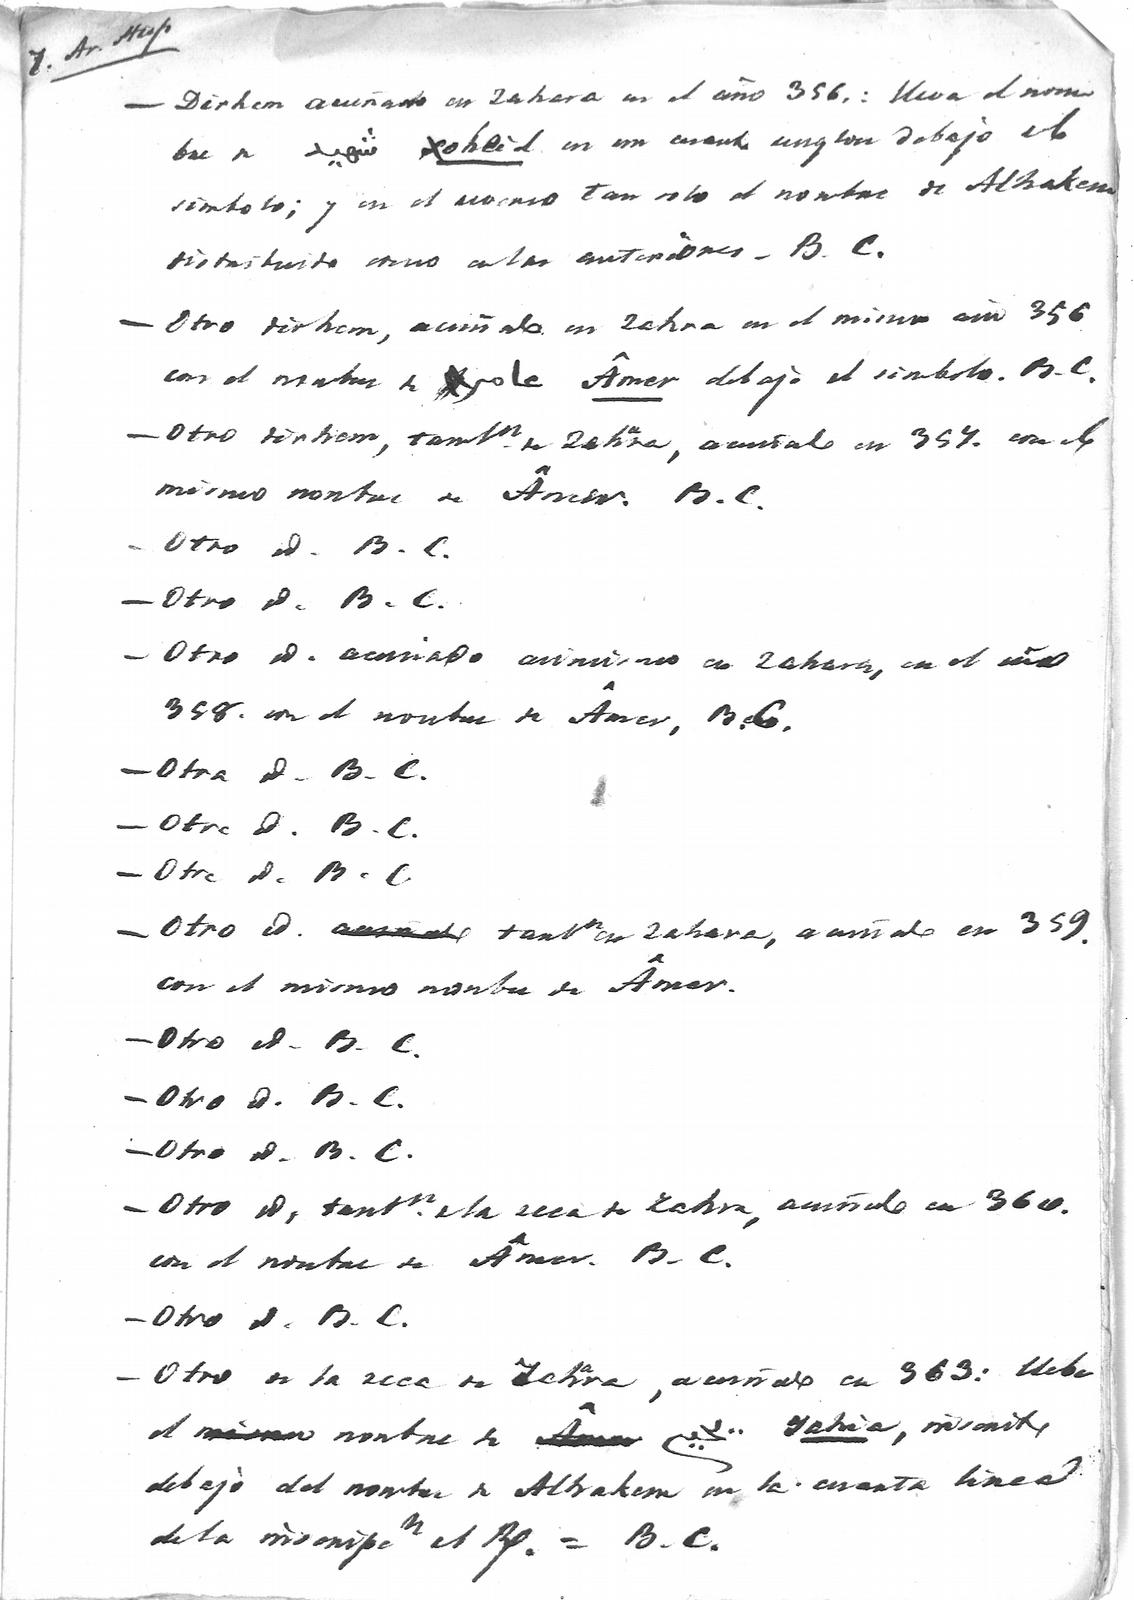 7. Ar. Hisp
— Dirhem acuñado en Zahara en el año 356.: lleva el nom
bre de شهيد xoheid en un cuarto renglon debajo el
simbolo; y en el reverso tan solo el nombre de Alhakem
distribuido como en las anteriores - B. C.
— Otro dirhem, acuñado en Zahra en el mismo año 356
con el nombre de Âmer debajo el simbolo. B.C.
— Otro dirhem, tambn. de Zahara, acuñado en 357. con el
mismo nombre de Âmer. B.C.
- Otro id. B.C.
— Otro id. B.C.
- Otro id. acuñado asimismo en Zahara, en el año
358. con el nombre de Âmer, B.C.
— Otra id. B.C.
— Otro id. B.C.
— Otro id. B.C
— Otro id. acuñado tambn en Zahara, acuñado en 359.
con el mismo nombre de Âmer.
— Otro id. B.C.
— Otro id. B.C.
— Otro id. B.C.
— Otro id, tambn. de la zeca de Zahra, acuñado en 360.
con el nombre de Âmer. B.C.
— Otro id. B.C.
— Otro de la zeca de Zahara, acuñado en 363: lleba
el mismo nombre de Âmer يحيى Yahia, inscrito
debajo del nombre de Alhakem en la cuarta linea
de la inscripcn del Rs. = B.C.